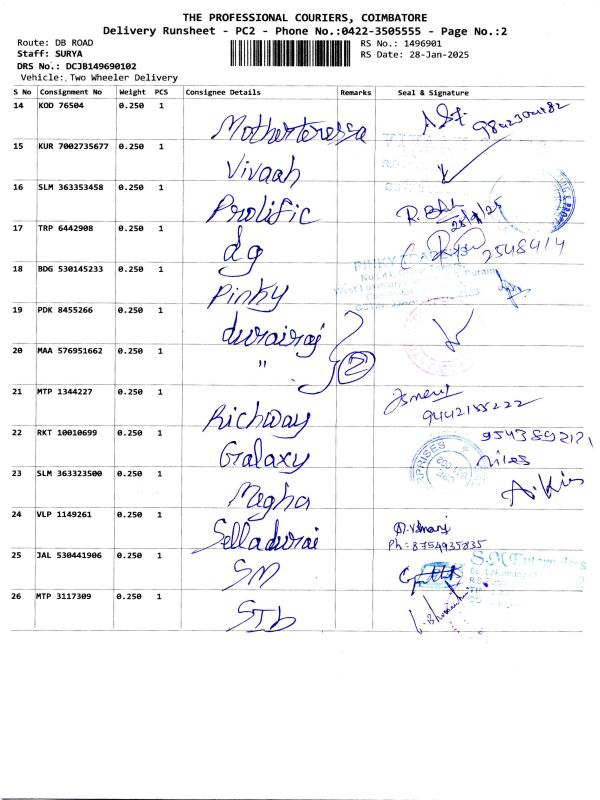 THE PROFESSIONAL COURIERS, COIMBATORE
Delivery Runsheet - PC2 - Phone No.:0422-3505555 - Page No.:2
Route: DB ROAD RS No.: 1496901
Staff: SURYA RS Date: 28-Jan-2025
DRS No.: DCJB149690102
Vehicle: Two Wheeler Delivery
S No Consignment No Weight PCS Consignee Details Remarks Seal & Signature
14 KOD 76504 0.250 1 Motherteressa
15 KUR 7002735677 0.250 1 Vivaah
16 SLM 363353458 0.250 1 Prolific
17 TRP 6442908 0.250 1 dg 2548414
18 BDG 530145233 0.250 1 Pinky
19 PDK 8455266 0.250 1 durairaj
20 MAA 576951662 0.250 1 " 2
21 MTP 1344227 0.250 1 Richway
9442155222
22 RKT 10010699 0.250 1 Galaxy
23 SLM 363323500 0.250 1 Megha
24 VLP 1149261 0.250 1 Selladurai
Ph: 8754935835
25 JAL 530441906 0.250 1 SM
26 MTP 3117309 0.250 1 STb